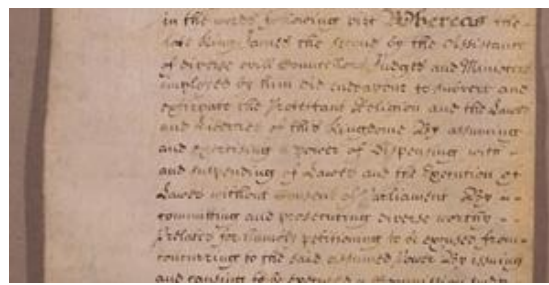 in the words following viz Whereas the
late King James the Second by the Assistance
of diverse evill Councellors Judges and Ministers
imployed by him did endeavour to subvert and
extirpate the Protestant Religion and the Lawes
and Liberties of this Kingdome By assuming
and exercising a power of Dispensing with
and suspending of Lawes and the Execution of
Lawes without Consent of Parliament By
committing and prosecuting diverse worthy
Prelates for humbly petitioning to be excused from
concurring to the said assumed Power By issuing
and causing to be executed a Commission under